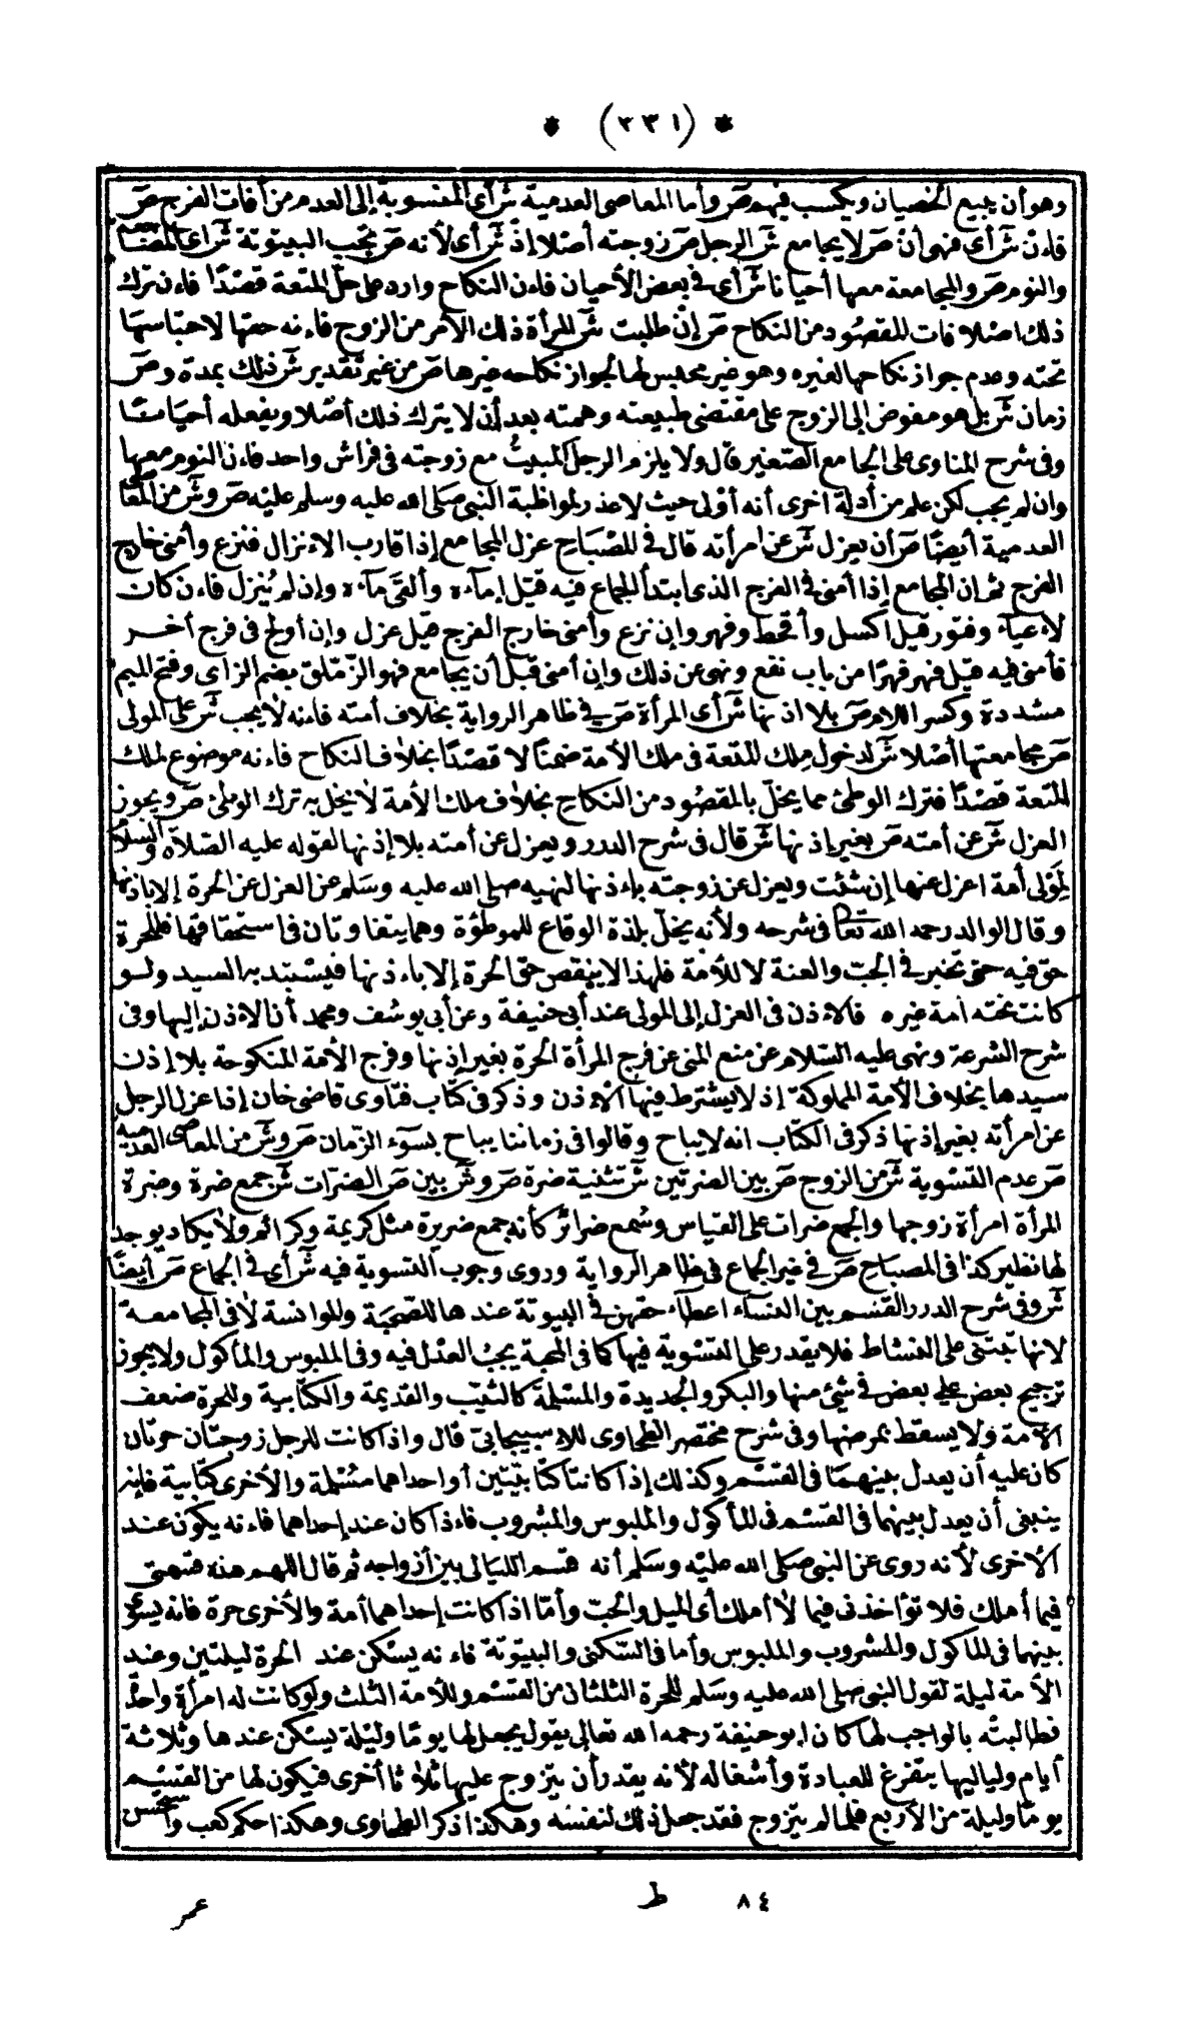 * (٣٣١) *
وهو أن يبيع الخصيان ويكسب فيهم ص وأما المعاصي العدمية ش أي المنسوبة إلى العدم من آفات الفرج ص
فإن ش أي فهي أن ص لا يجامع ش الرجل ص زوجته أصلا إذ ش أي لأنه ص تجب البيتوتة ش أي المضا
والنوم ص والمجامعة معها أحيانا ش أي في بعض الأحيان فإن النكاح وارد على حل المتعة قصدًا فإن ترك
ذلك اصلا فات المقصود من النكاح ص إن طلبت ش المرأة ذلك الأمر من الزوج فإنه حقها لاحتباسها
تحته وعدم جواز نكاحها لغيره وهو غير محتبس لها لجواز نكاحه غيرها ص من غير تقدير ش ذلك بمدة وص
زمان ش بل هو مفوض إلى الزوج على مقتضى طبيعته وهمته بعد أن لا يترك ذلك أصلا ويفعله أحيانا
وفي شرح المناوي على الجامع الصغير قال ولا يلزم الرجل المبيت مع زوجته في فراش واحد فإن النوم معها
وان لم يجب لكن علم من أدلة اخرى أنه أولى حيث لا عذر لمواظبة النبي صلى الله عليه وسلم عليه ص و ش من المعاصي
العدمية أيضًا ص أن يعزل ش عن امرأته قال في المصباح عزل المجامع إذا قارب الإنزال فنزع وأمنى خارج
الفرج ثم إن المجامع إذا أمنى في الفرج الذي ابتدأ الجماع فيه قيل إماءه وألقى ماءه وإن لم يُنزل فإن كان
لإعياء وفتور قيل اكسل وأقحط وفهر وإن نزع وأمنى خارج الفرج قيل عزل وإن أولج في فرج أخر
فأمنى فيه قيل فهر فهرًا من باب نفع ونهى عن ذلك وإن أمنى قبل أن يجامع فهو الزملق بضم الزاى وفتح الميم
مشددة وكسر اللام ص بلا اذنها ش أي المرأة ص في ظاهر الرواية بخلاف أمته فإنه لا يجب ش على المولى
ص مجامعتها أصلا ش لدخول ملك المتعة في ملك الأمة ضمنًا لا قصدًا بخلاف النكاح فإنه موضوع لملك
المتعة قصدًا فترك الوطئ مما يخل بالمقصود من النكاح بخلاف ملك الأمة لا يخل به ترك الوطئ ص ويجوز
العزل ش عن أمته ص بغير إذنها ش قال في شرح الدرر ويعزل عن أمته بلا إذنها لقوله عليه الصلاة والسلام
لمولى أمة اعزل عنها إن شئت ويعزل عن زوجته بإذنها لنهيه صلى الله عليه وسلم عن العزل عن الحرة إلا باذنها
وقال الوالد رحمه الله تعالى في شرحه ولأنه يخل بلذة الوقاع للموطوءة وهما يتفاوتان في استحقاقها فللحرة
حق فيه حتى تخير في الجب والعنة لا للأمة فلهذا لا ينقص حق الحرة إلا بإذنها فيستبد به السيد ولو
كانت تحته امة غيره فالإذن في العزل إلى المولى عند أبي حنيفة وعن أبي يوسف ومحمد أن الاذن إليها وفي
شرح الشرعة ونهى عليه السلام عن منع المني عن فرج المرأة الحرة بغير إذنها وفرج الأمة المنكوحة بلا إذن
سيدها بخلاف الأمة المملوكة إذ لا يشترط فيها الإذن وذكر في كتاب فتاوى قاضي خان إذا عزل الرجل
عن امرأته بغير إذنها ذكر في الكتاب انه لا يباح وقالوا في زماننا يباح لسوء الزمان ص و ش من المعاصي العدمية
ص عدم التسوية ش من الزوج ص بين الضرتين ش تثنية ضرة ص و ش بين ص الضرات ش جمع ضرة وضرة
المرأة امرأة زوجها والجمع ضرات على القياس وسُمع ضرائر كأنه جمع ضريرة مثل كريمة وكرائم ولا يكاد يوجد
لها نظير كذا في المصباح ص في غير الجماع في ظاهر الرواية وروى وجوب التسوية فيه ش أي في الجماع ص أيضًا
ش وفي شرح الدرر القسم بين النساء اعطاء حقهن في البيتوتة عندها للصحبة والموانسة لا في المجامعة
لانها تبتنى على النشاط فلا يقدر على التسوية فيها كما في المحبة يجب العدل فيه وفي الملبوس والمأكول ولا يجوز
ترجيح بعض على بعض في شئ منها والبكر والجديدة والمسلمة كالثيب والقديمة والكتابية وللحرة ضعف
الأمة ولا يسقط بمرضها وفي شرح مختصر الطحاوى للاسبيجابي قال واذا كانت للرجل زوجتان حرتان
كان عليه أن يعدل بينهما في القسم وكذلك إذا كانتا كتابيتين أو احداهما مسلمة والأخرى كتابية فإنه
ينبغي أن يعدل بينهما في القسم في المأكول والملبوس والمشروب فإذا كان عند إحداهما فإنه يكون عند
الأخرى لأنه روى عن النبي صلى الله عليه وسلم أنه قسم الليالي بين أزواجه ثم قال اللهم هذه قسمتي
فيما أملك فلا تؤاخذني فيما لا أملك أى الميل والحب وأما اذا كانت إحداهما أمة والأخرى حرة فانه يسوى
بينهما في المأكول والمشروب والملبوس وأما في السكنى والبيتوتة فإنه يسكن عند الحرة ليلتين وعند
الأمة ليلة لقول النبي صلى الله عليه وسلم للحرة الثلثان من القسم وللأمة الثلث ولو كانت له امرأة واحدة
فطالبته بالواجب لها كان ابو حنيفة رحمه الله تعالى يقول يجعل لها يومًا وليلة يسكن عندها وثلاثة
أيام ولياليها يتفرغ للعبادة وأشغاله لأنه يقدر أن يتزوج عليها ثلاثا أخرى فيكون لها من القسم
يومًا وليلة من الأربع فلما لم يتزوج فقد جعل ذلك لنفسه وهكذا ذكر الطحاوى وهكذا حكم كعب واستحسن
٨٤ ط عمر